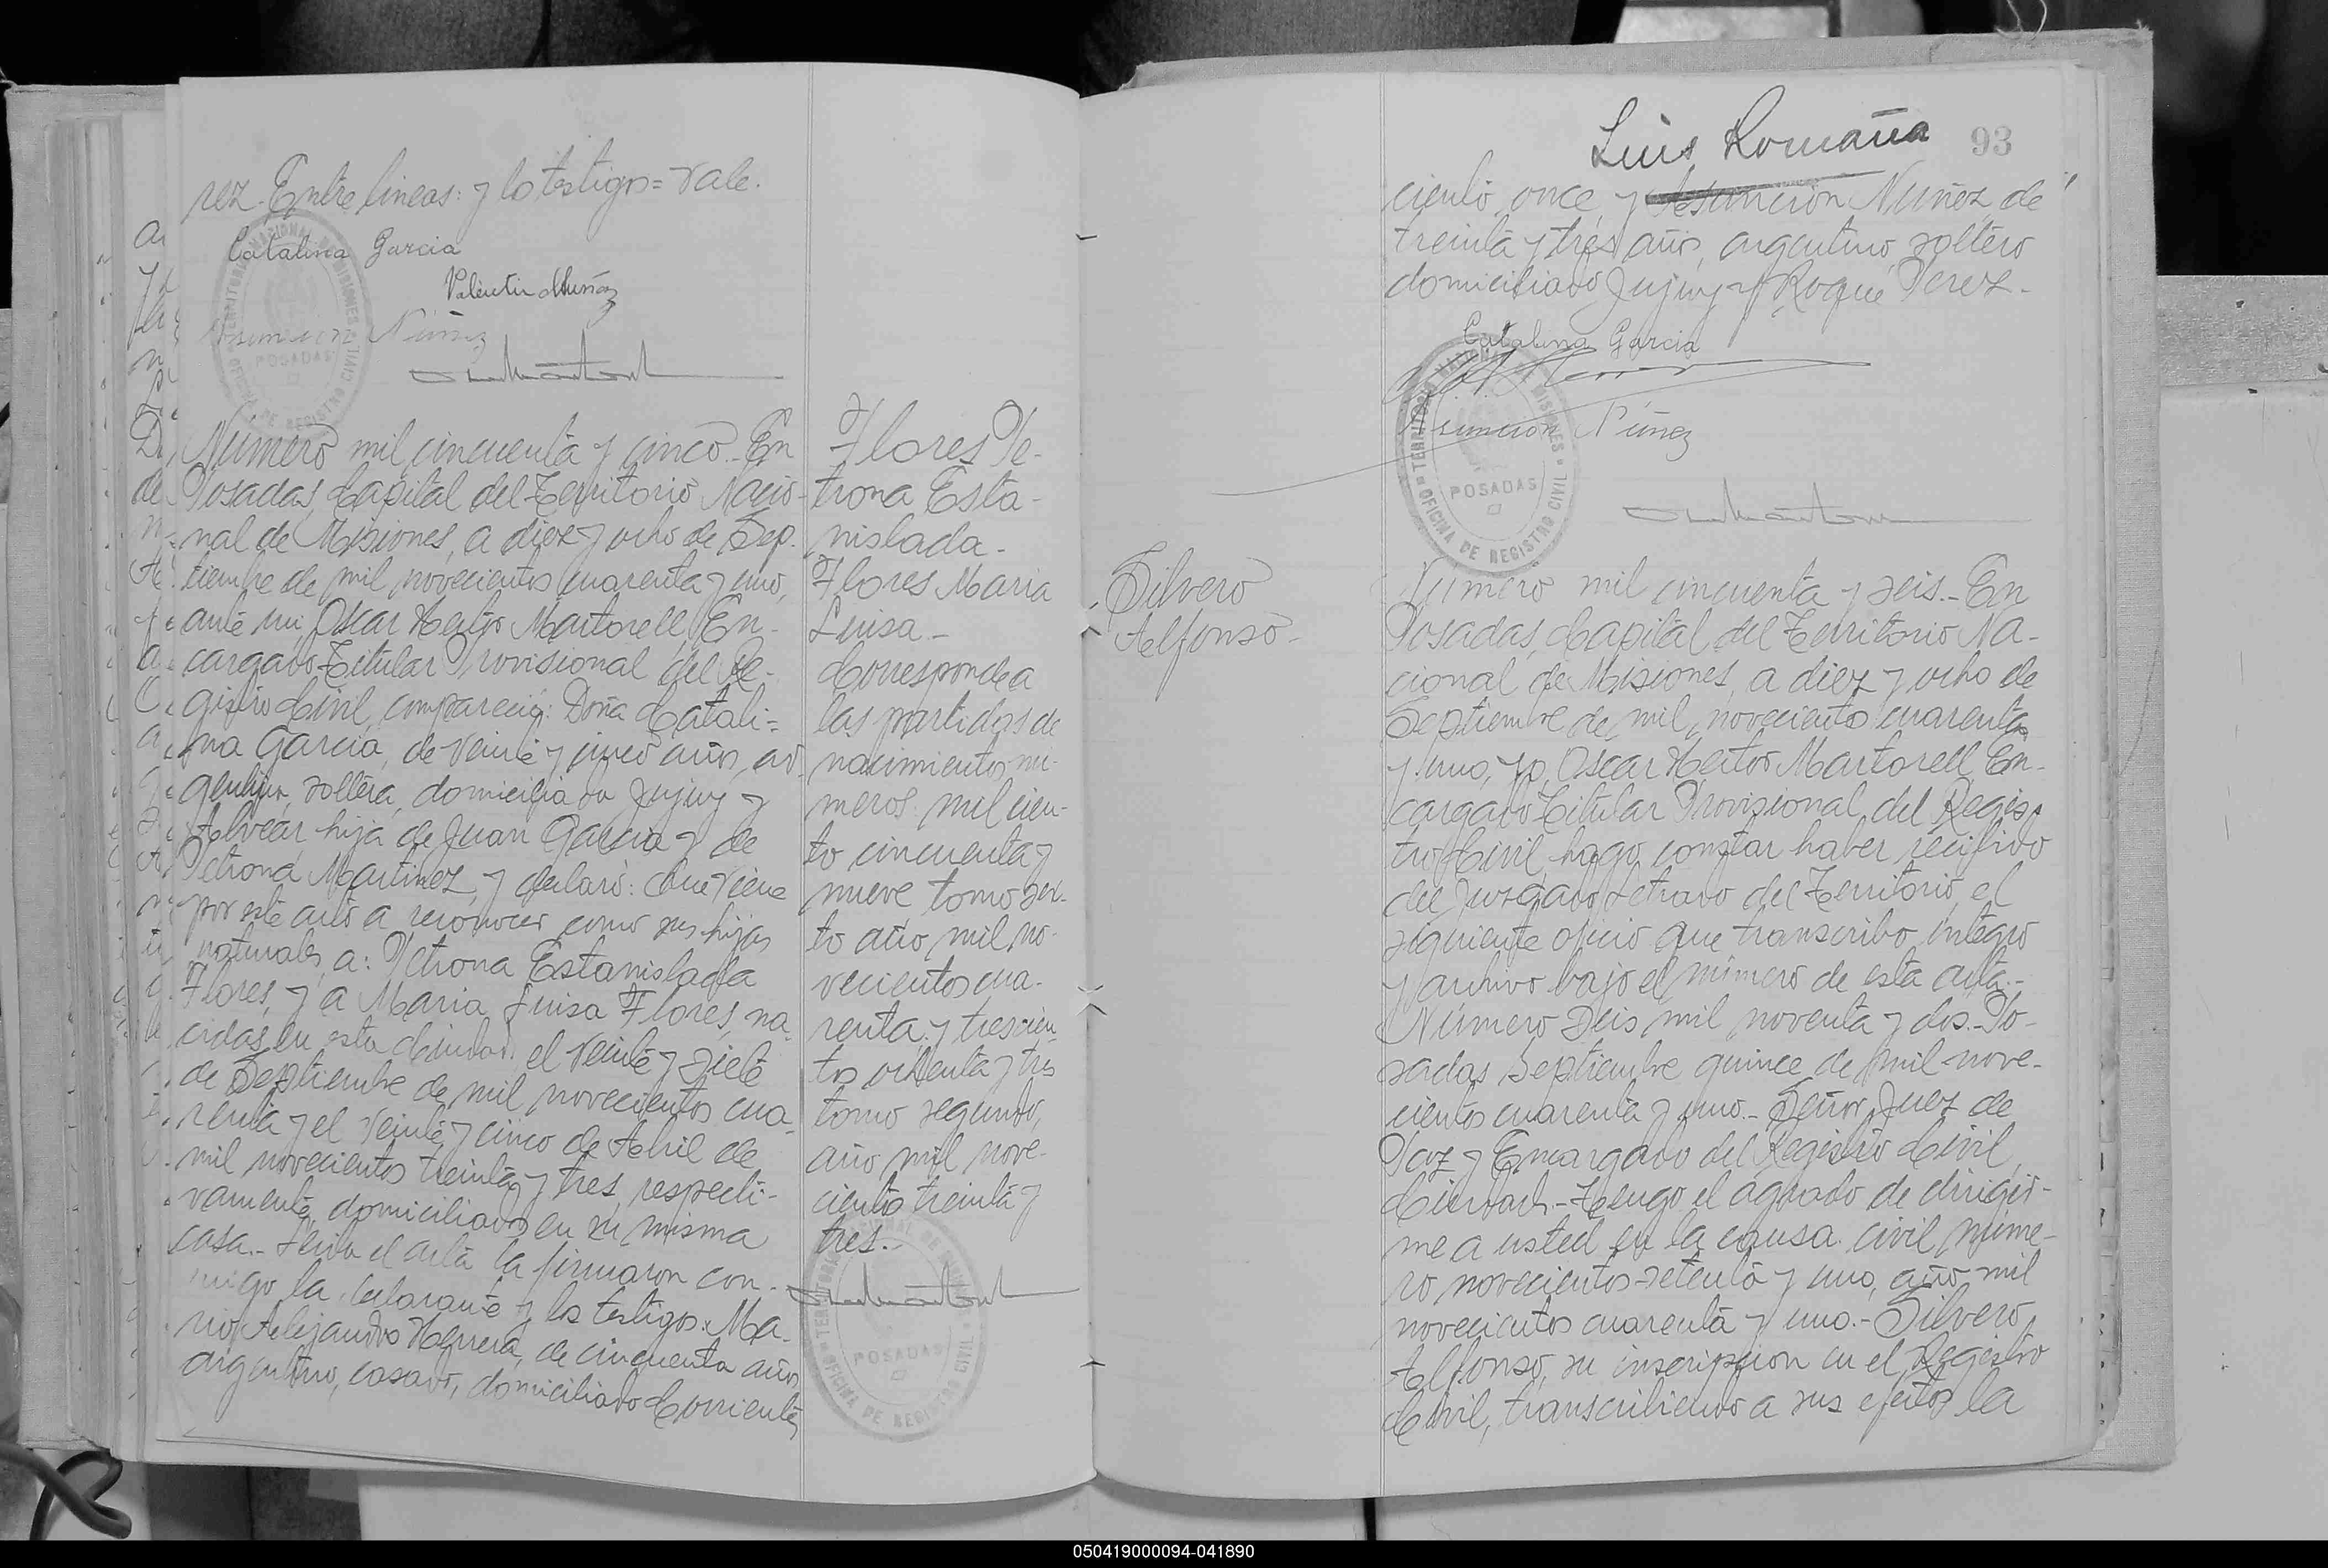 rez. Entre lineas: y lo testigos = Vale.
Catalina Garcia
Valentin Muñoz
Asuncion Nuñez
TERRITORIO NACIONAL DE MISIONES
POSADAS
OFICINA DE REGISTRO CIVIL
Número mil cincuenta y cinco.- En
Posadas, Capital del Territorio Nacio-
nal de Misiones, a diez y ocho de Sep-
tiembre de mil novecientos cuarenta y uno,
ante mi, Oscar Hector Martorell, En-
cargado Titular Provisional del Re-
gistro Civil, compareció: Doña Catali-
na Garcia, de veinte y cinco años, ar-
gentina, soltera, domiciliada Jujuy y
Alvear hija de Juan Garcia y de
Petrona Martinez, y declaró: Que viene
por este acto a reconocer como sus hijas
naturales, a: Petrona Estanislada
Flores, y a Maria Luisa Flores, na-
cidas en esta Ciudad, el veinte y siete
de Septiembre de mil novecientos cua-
renta y el veinte y cinco de Abril de
mil novecientos treinta y tres, respecti-
vamente, domiciliados en su misma
casa.- Leida el acta la firmaron con-
migo la declarante y los testigos: Ma-
rio Alejandro Herrera, de cincuenta años,
argentino, casado, domiciliado Corrientes
Flores Pe-
trona Esta-
nislada-
Flores Maria
Luisa-
Corresponde a
las partidas de
nacimientos nú-
meros: mil cien-
to cincuenta y
nueve tomo sex-
to año mil no-
vecientos cua-
renta y trescien-
tos ochenta y tres
tomo segundo,
año mil nove-
cientos treinta y
tres.-
TERRITORIO NACIONAL DE MISIONES
POSADAS
OFICINA DE REGISTRO CIVIL
Luis Romaña
93
ciento once, y Asunción Nuñez, de
treinta y tres años, argentino, soltero
domiciliado Jujuy y Roque Perez.-
Catalina Garcia
Asuncion Nuñez
TERRITORIO NACIONAL DE MISIONES
POSADAS
OFICINA DE REGISTRO CIVIL
Silvero
Alfonso-
Número mil cincuenta y seis.- En
Posadas, Capital del Territorio Na-
cional de Misiones, a diez y ocho de
Septiembre de mil novecientos cuarenta
y uno, yo, Oscar Hector Martorell, En-
cargado Titular Provisional del Regis-
tro Civil, hago constar haber recibido
del Juzgado Letrado del Territorio, el
siguiente oficio que transcribo integro
y archivo bajo el número de esta acta.-
Número Seis mil noventa y dos.- Po-
sadas, Septiembre quince de mil nove-
cientos cuarenta y uno.- Señor Juez de
Paz y Encargado del Registro Civil,
Ciudad.- Tengo el agrado de dirigir-
me a usted en la causa civil núme-
ro novecientos setenta y uno, año mil
novecientos cuarenta y uno.- Silvero
Alfonso, su inscripcion en el Registro
Civil, transcribiendo a sus efectos la
050419000094-041890